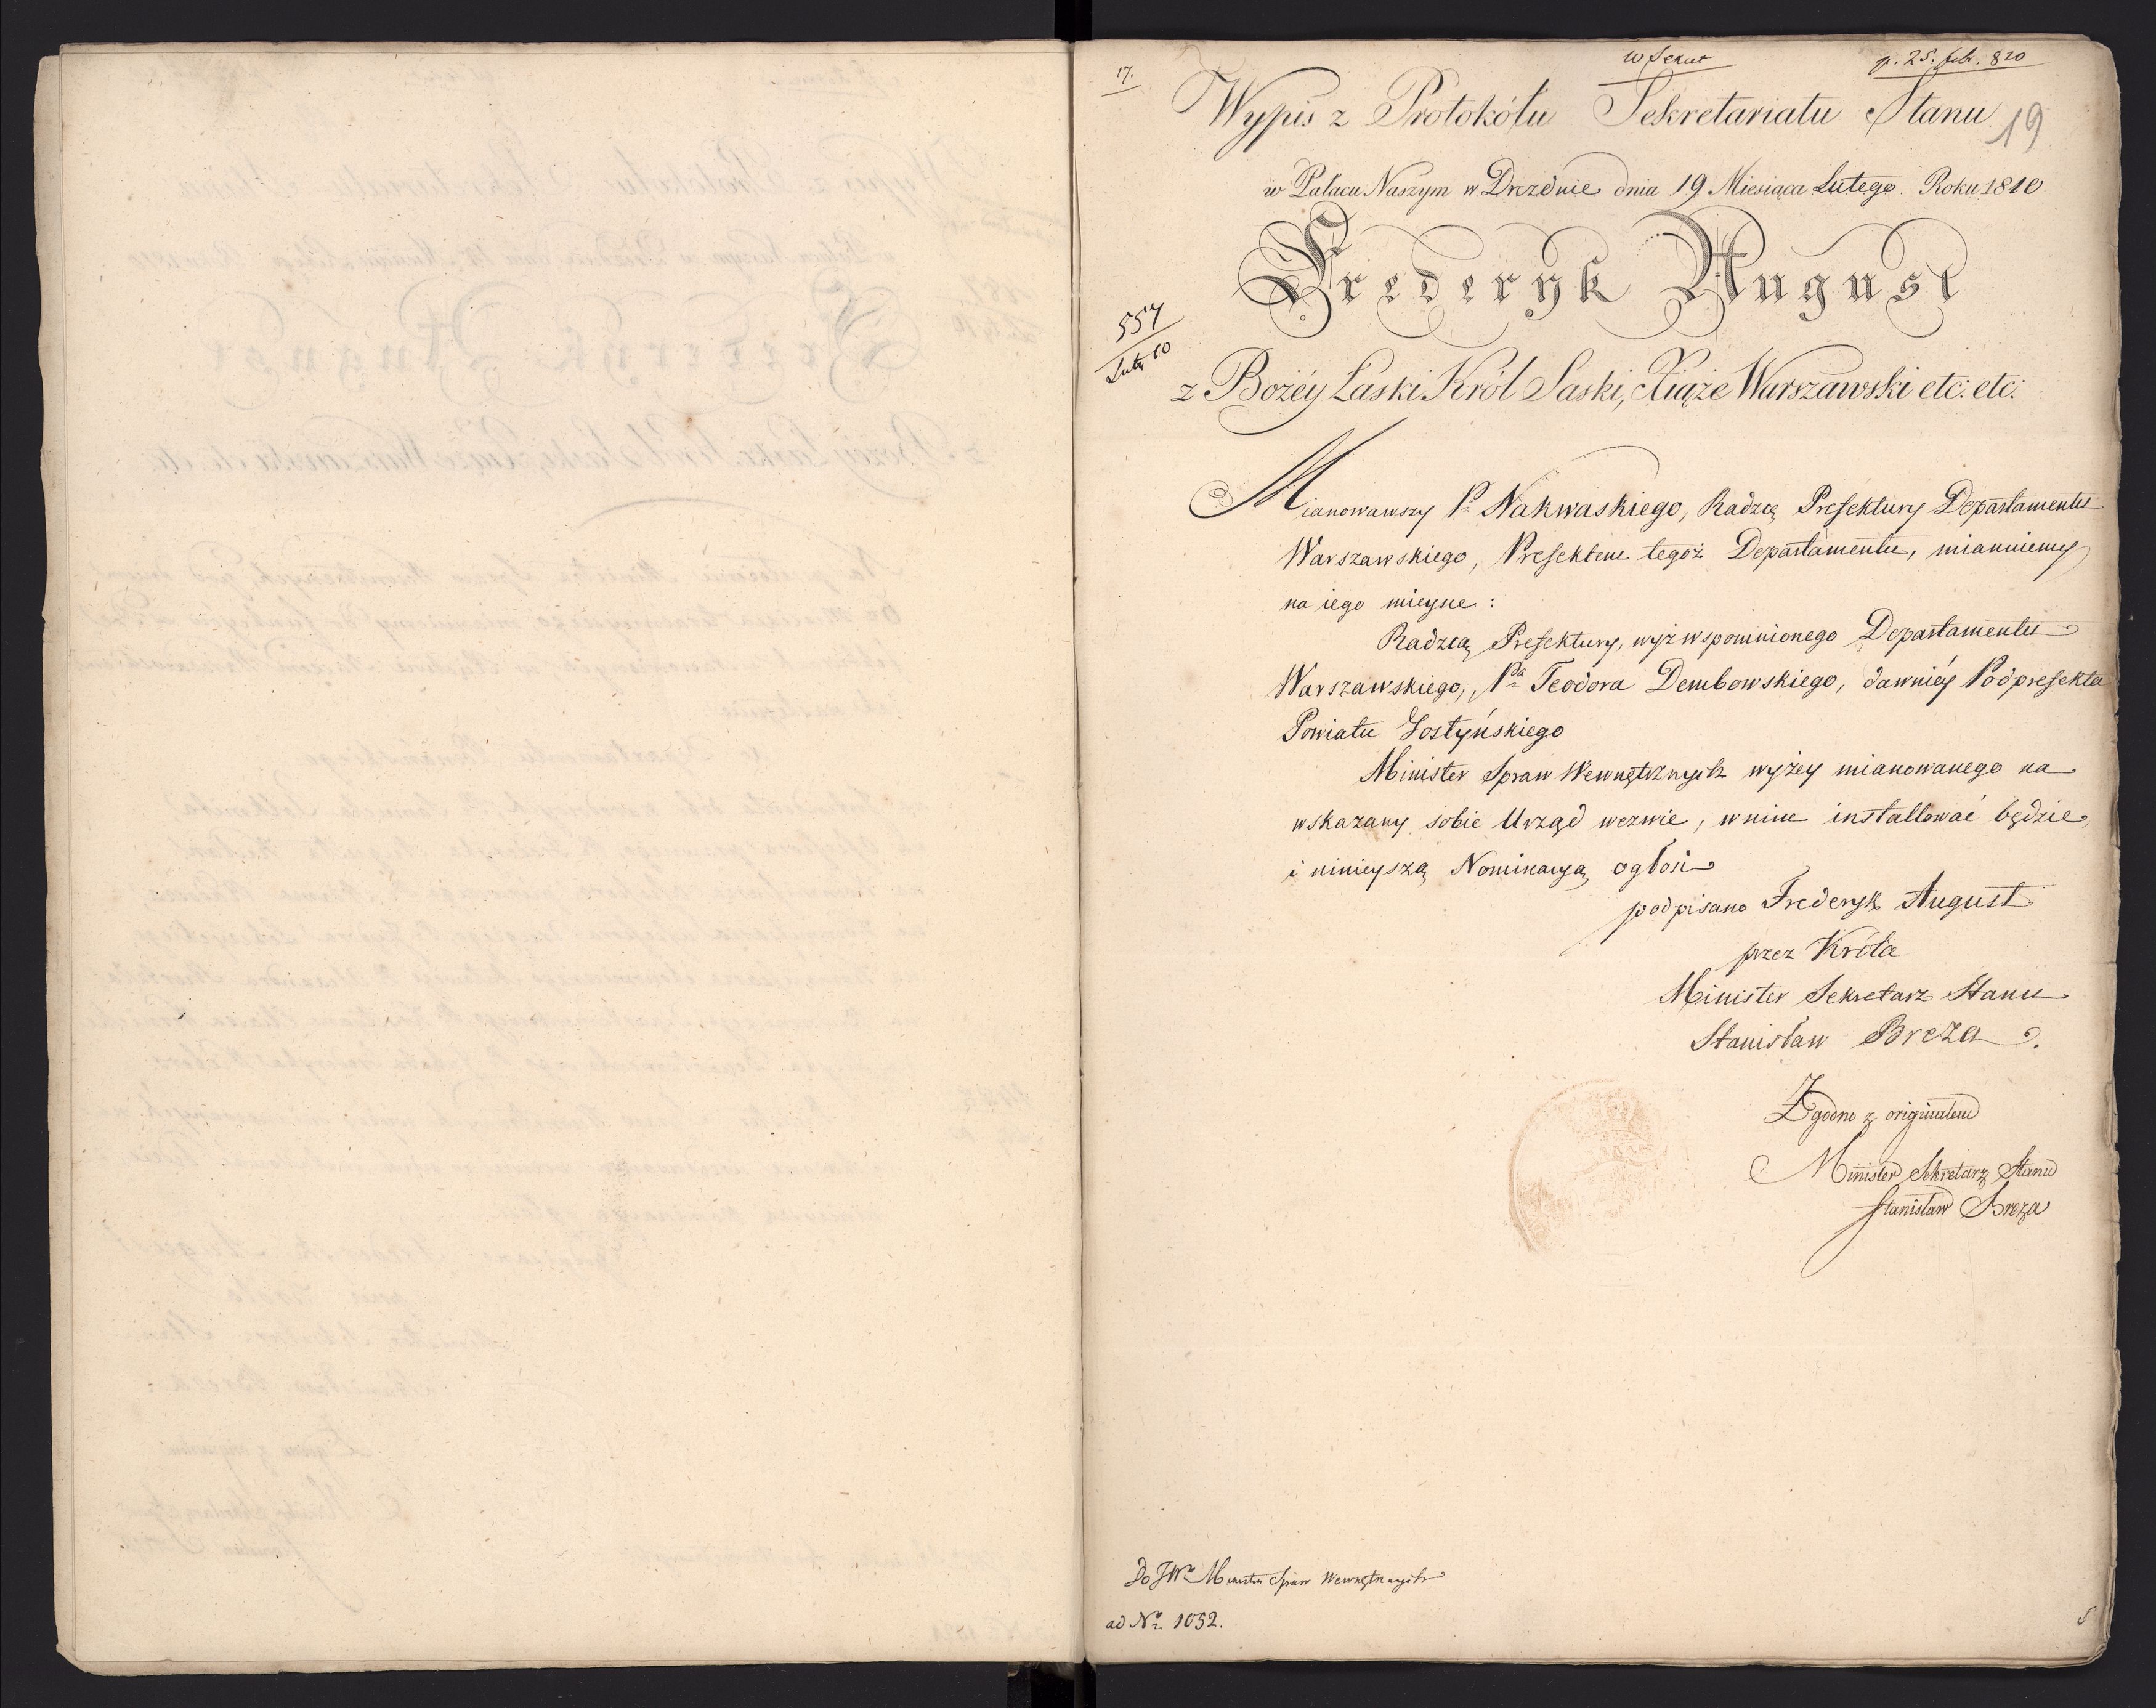 17.
p. 25. feb. 810
Wypis z Protokółu Sekretariatu Stanu
19
w Pałacu Naszym w Dreznie dnia 19 Miesiąca Lutego Roku 1810
Frederyk August
557
Luty 10
z Bożéy Łaski Król Saski, Xiąże Warszawski etc: etc:
Mianowawszy Pa Nakwaskiego, Radzcę Prefektury Departamentu
Warszawskiego, Prefektem tegoż Departamentu, mianuiemy
na iego mieysce:
Radzcą Prefektury, wyż wspomnionego Departamentu
Warszawskiego, Pa Teodora Dembowskiego, dawniéy Podprefekta
Powiatu Gostyńskiego
Minister Spraw Wewnętrznych wyżey mianowanego na
wskazany sobie Urząd wezwie, w nim installować będzie,
i ninieyszą Nominacyą ogłosi
podpisano Frederyk August
przez Króla
Minister Sekretarz Stanu
Stanisław Breza.
Zgodno z originałem
Minister Sekretarz Stanu
Stanisław Breza
Do JWo Ministra Spraw Wewnętrznych
ad No 1052.